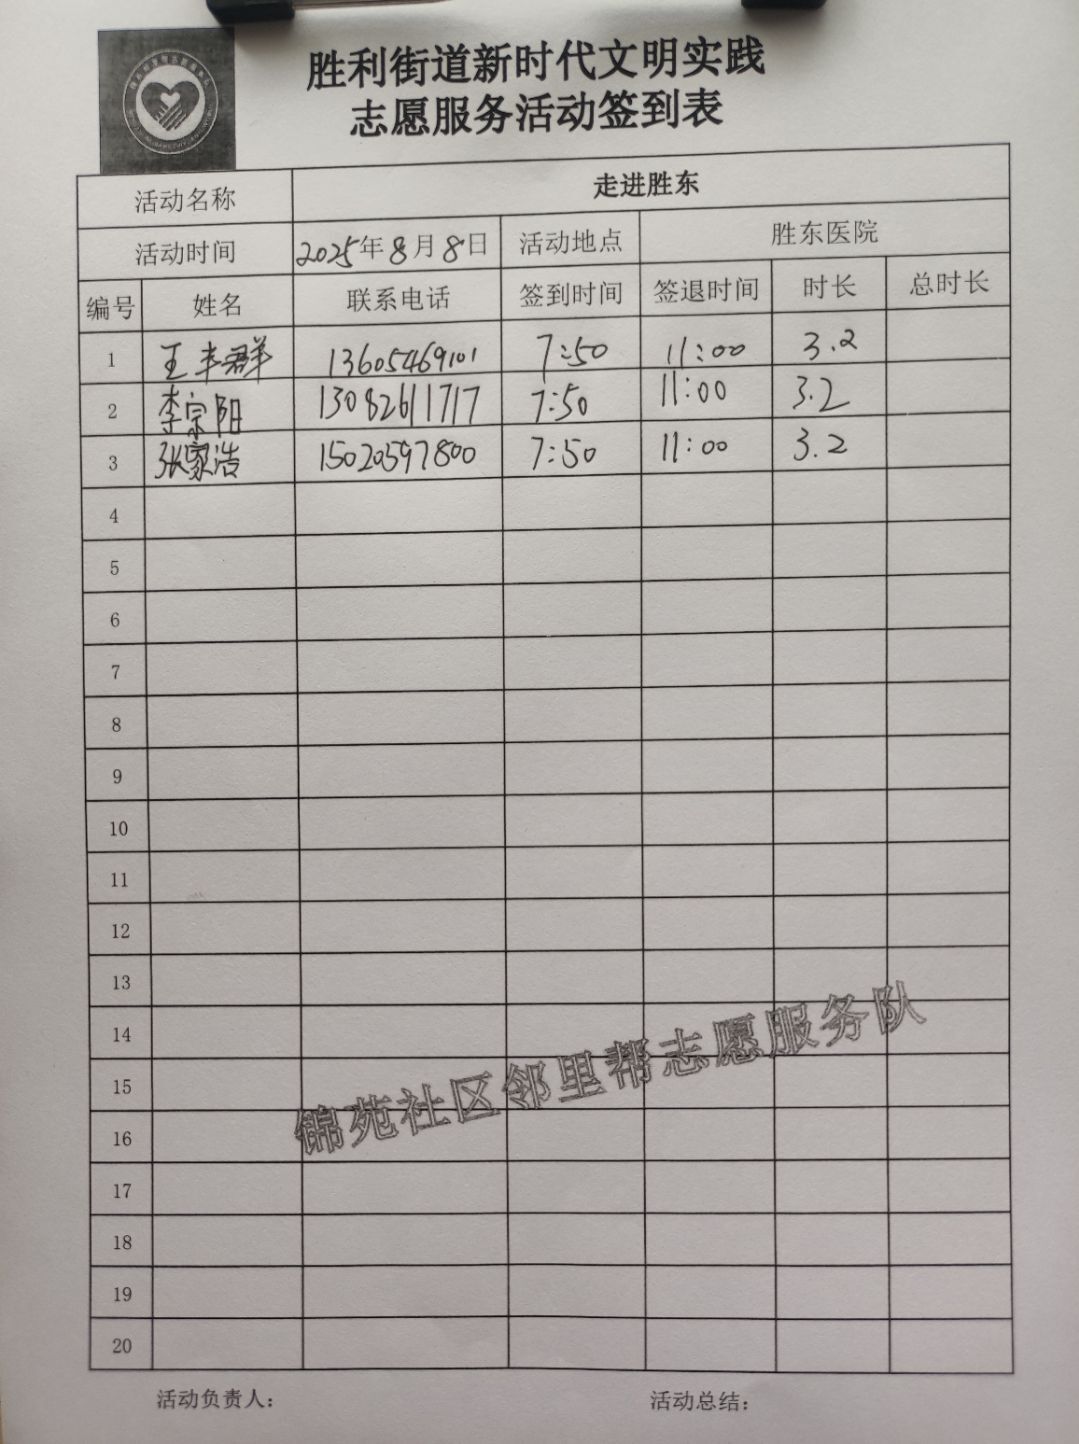 胜利街道新时代文明实践
志愿服务活动签到表
活动名称 走进胜东
活动时间 2025年8月8日 活动地点 胜东医院
编号 姓名 联系电话 签到时间 签退时间 时长 总时长
1 王丰群 13605469101 7:50 11:00 3.2
2 李宗阳 13082611717 7:50 11:00 3.2
3 张家浩 15020597800 7:50 11:00 3.2
4
5
6
7
8
9
10
11
12
13
14
15
16
17
18
19
20
锦苑社区邻里帮志愿服务队
活动负责人： 活动总结：